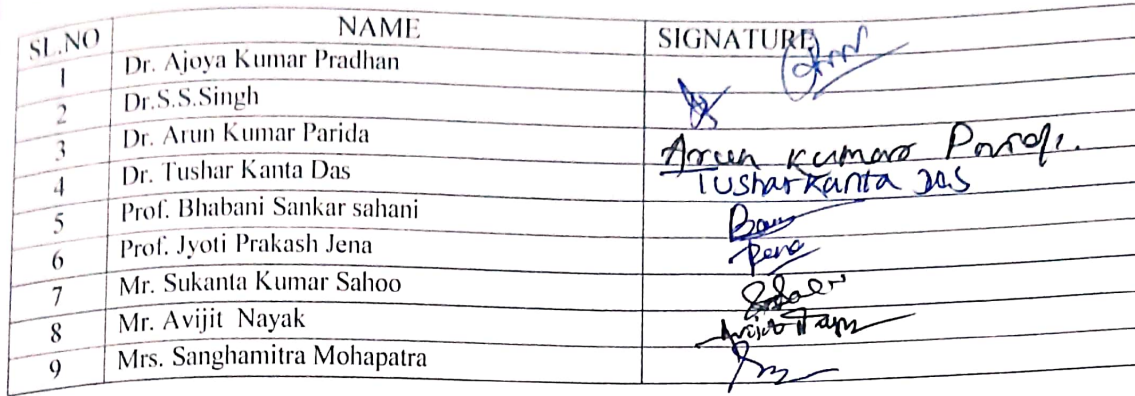 SL.NO NAME SIGNATURE
1 Dr. Ajoya Kumar Pradhan
2 Dr.S.S.Singh
3 Dr. Arun Kumar Parida Arun Kumar
4 Dr. Tushar Kanta Das Tushar Kanta Das
5 Prof. Bhabani Sankar sahani
6 Prof. Jyoti Prakash Jena Jena
7 Mr. Sukanta Kumar Sahoo
8 Mr. Avijit Nayak Avijit
9 Mrs. Sanghamitra Mohapatra